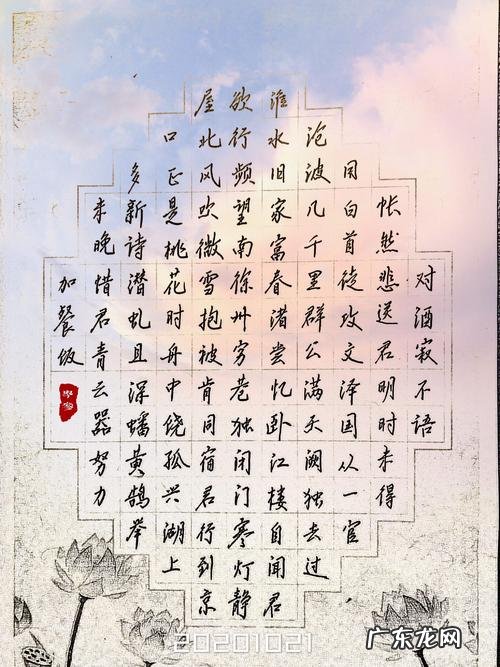 对酒寂不语
怅然悲送君明时未得
用白首徒攻文泽国从一官
沧波几千里群公满天阙独去过
淮水旧家富春渚尝忆卧江楼自闻君
欲行频望南徐州穷巷独闭门寒灯静
屋北风吹微雪抱被肯同宿君行到京
口正是桃花时舟中绕孤兴湖上
多新诗潜虬且深蟠黄鹄举
未晚惜君青云器努力
加餐饭
20201021
广东龙网